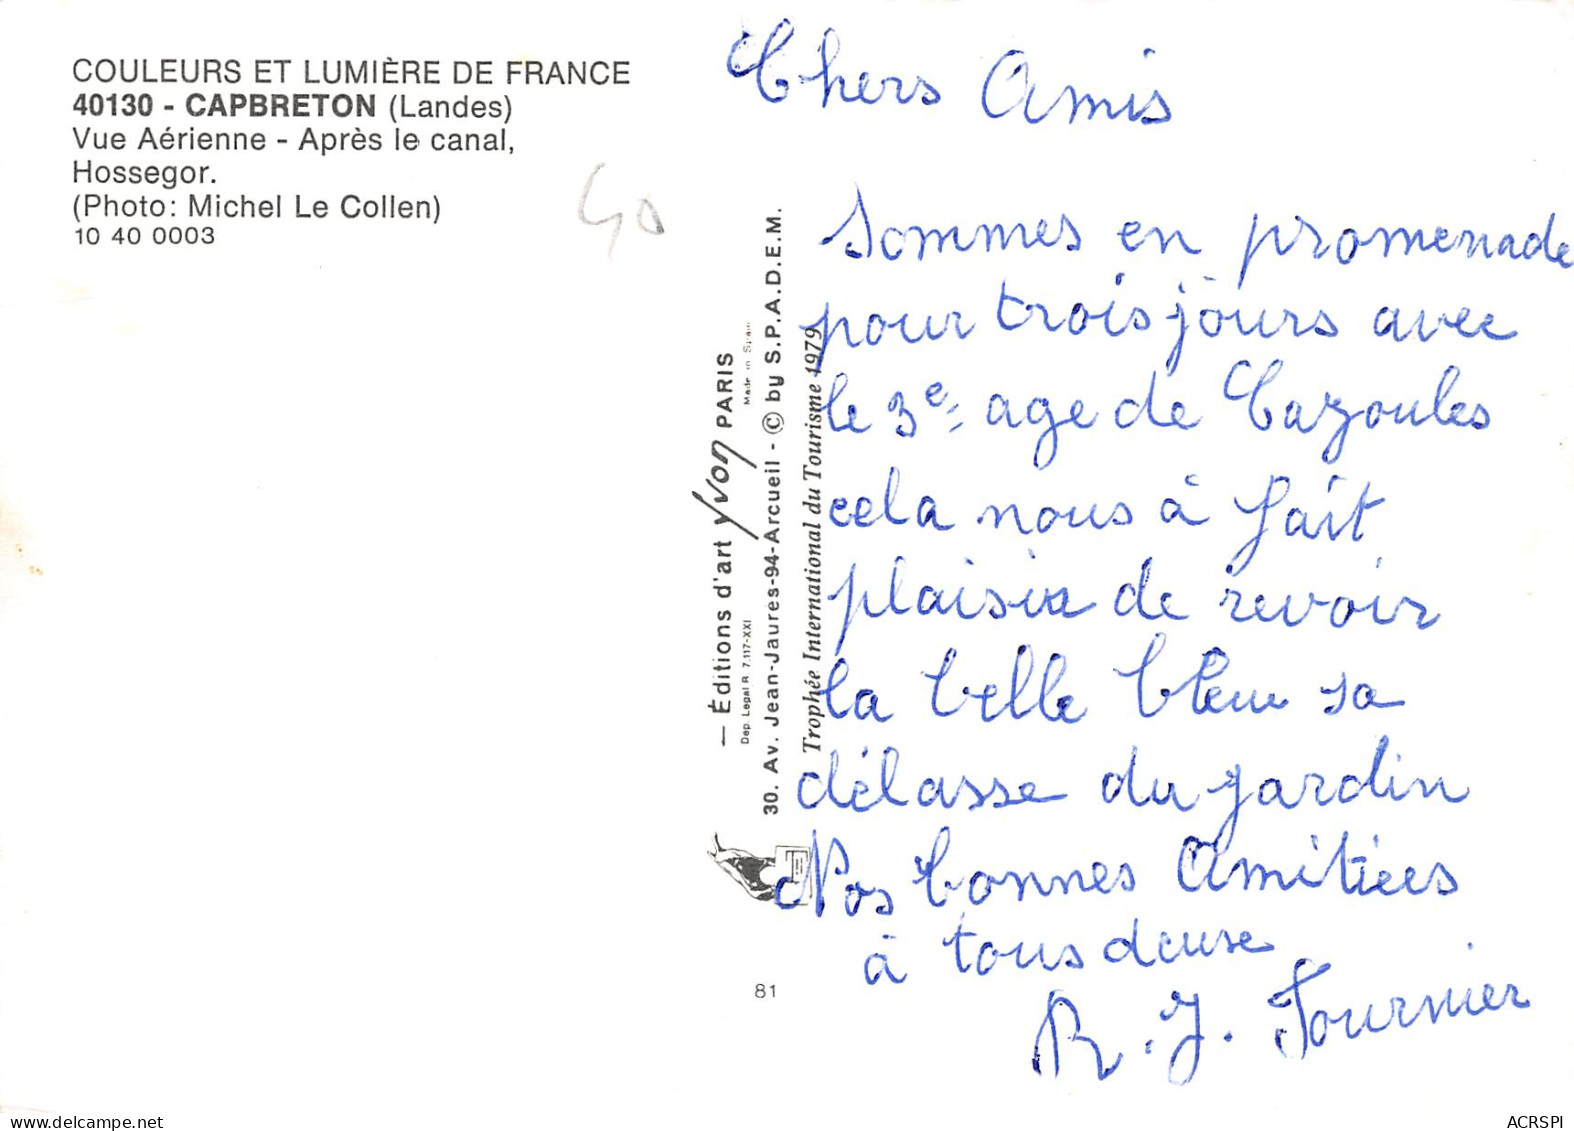 COULEURS ET LUMIÈRE DE FRANCE
40130 - CAPBRETON (Landes)
Vue Aérienne - Après le canal,
Hossegor.
(Photo: Michel Le Collen)
10 40 0003
40
— Éditions d'art yvon PARIS
Dep. Legal R. 7.117-XXI
Made in Spain
30. Av. Jean-Jaurès-94-Arcueil - © by S.P.A.D.E.M.
Trophée International du Tourisme 1979
81
Chers Amis
Sommes en promenade
pour trois jours avec
le 3e age de Cazoules
cela nous à fait
plaisir de revoir
la belle bleue sa
délasse du jardin
Nos bonnes Amitiées
à tous deuse
R. J. Fournier
ACRSPI